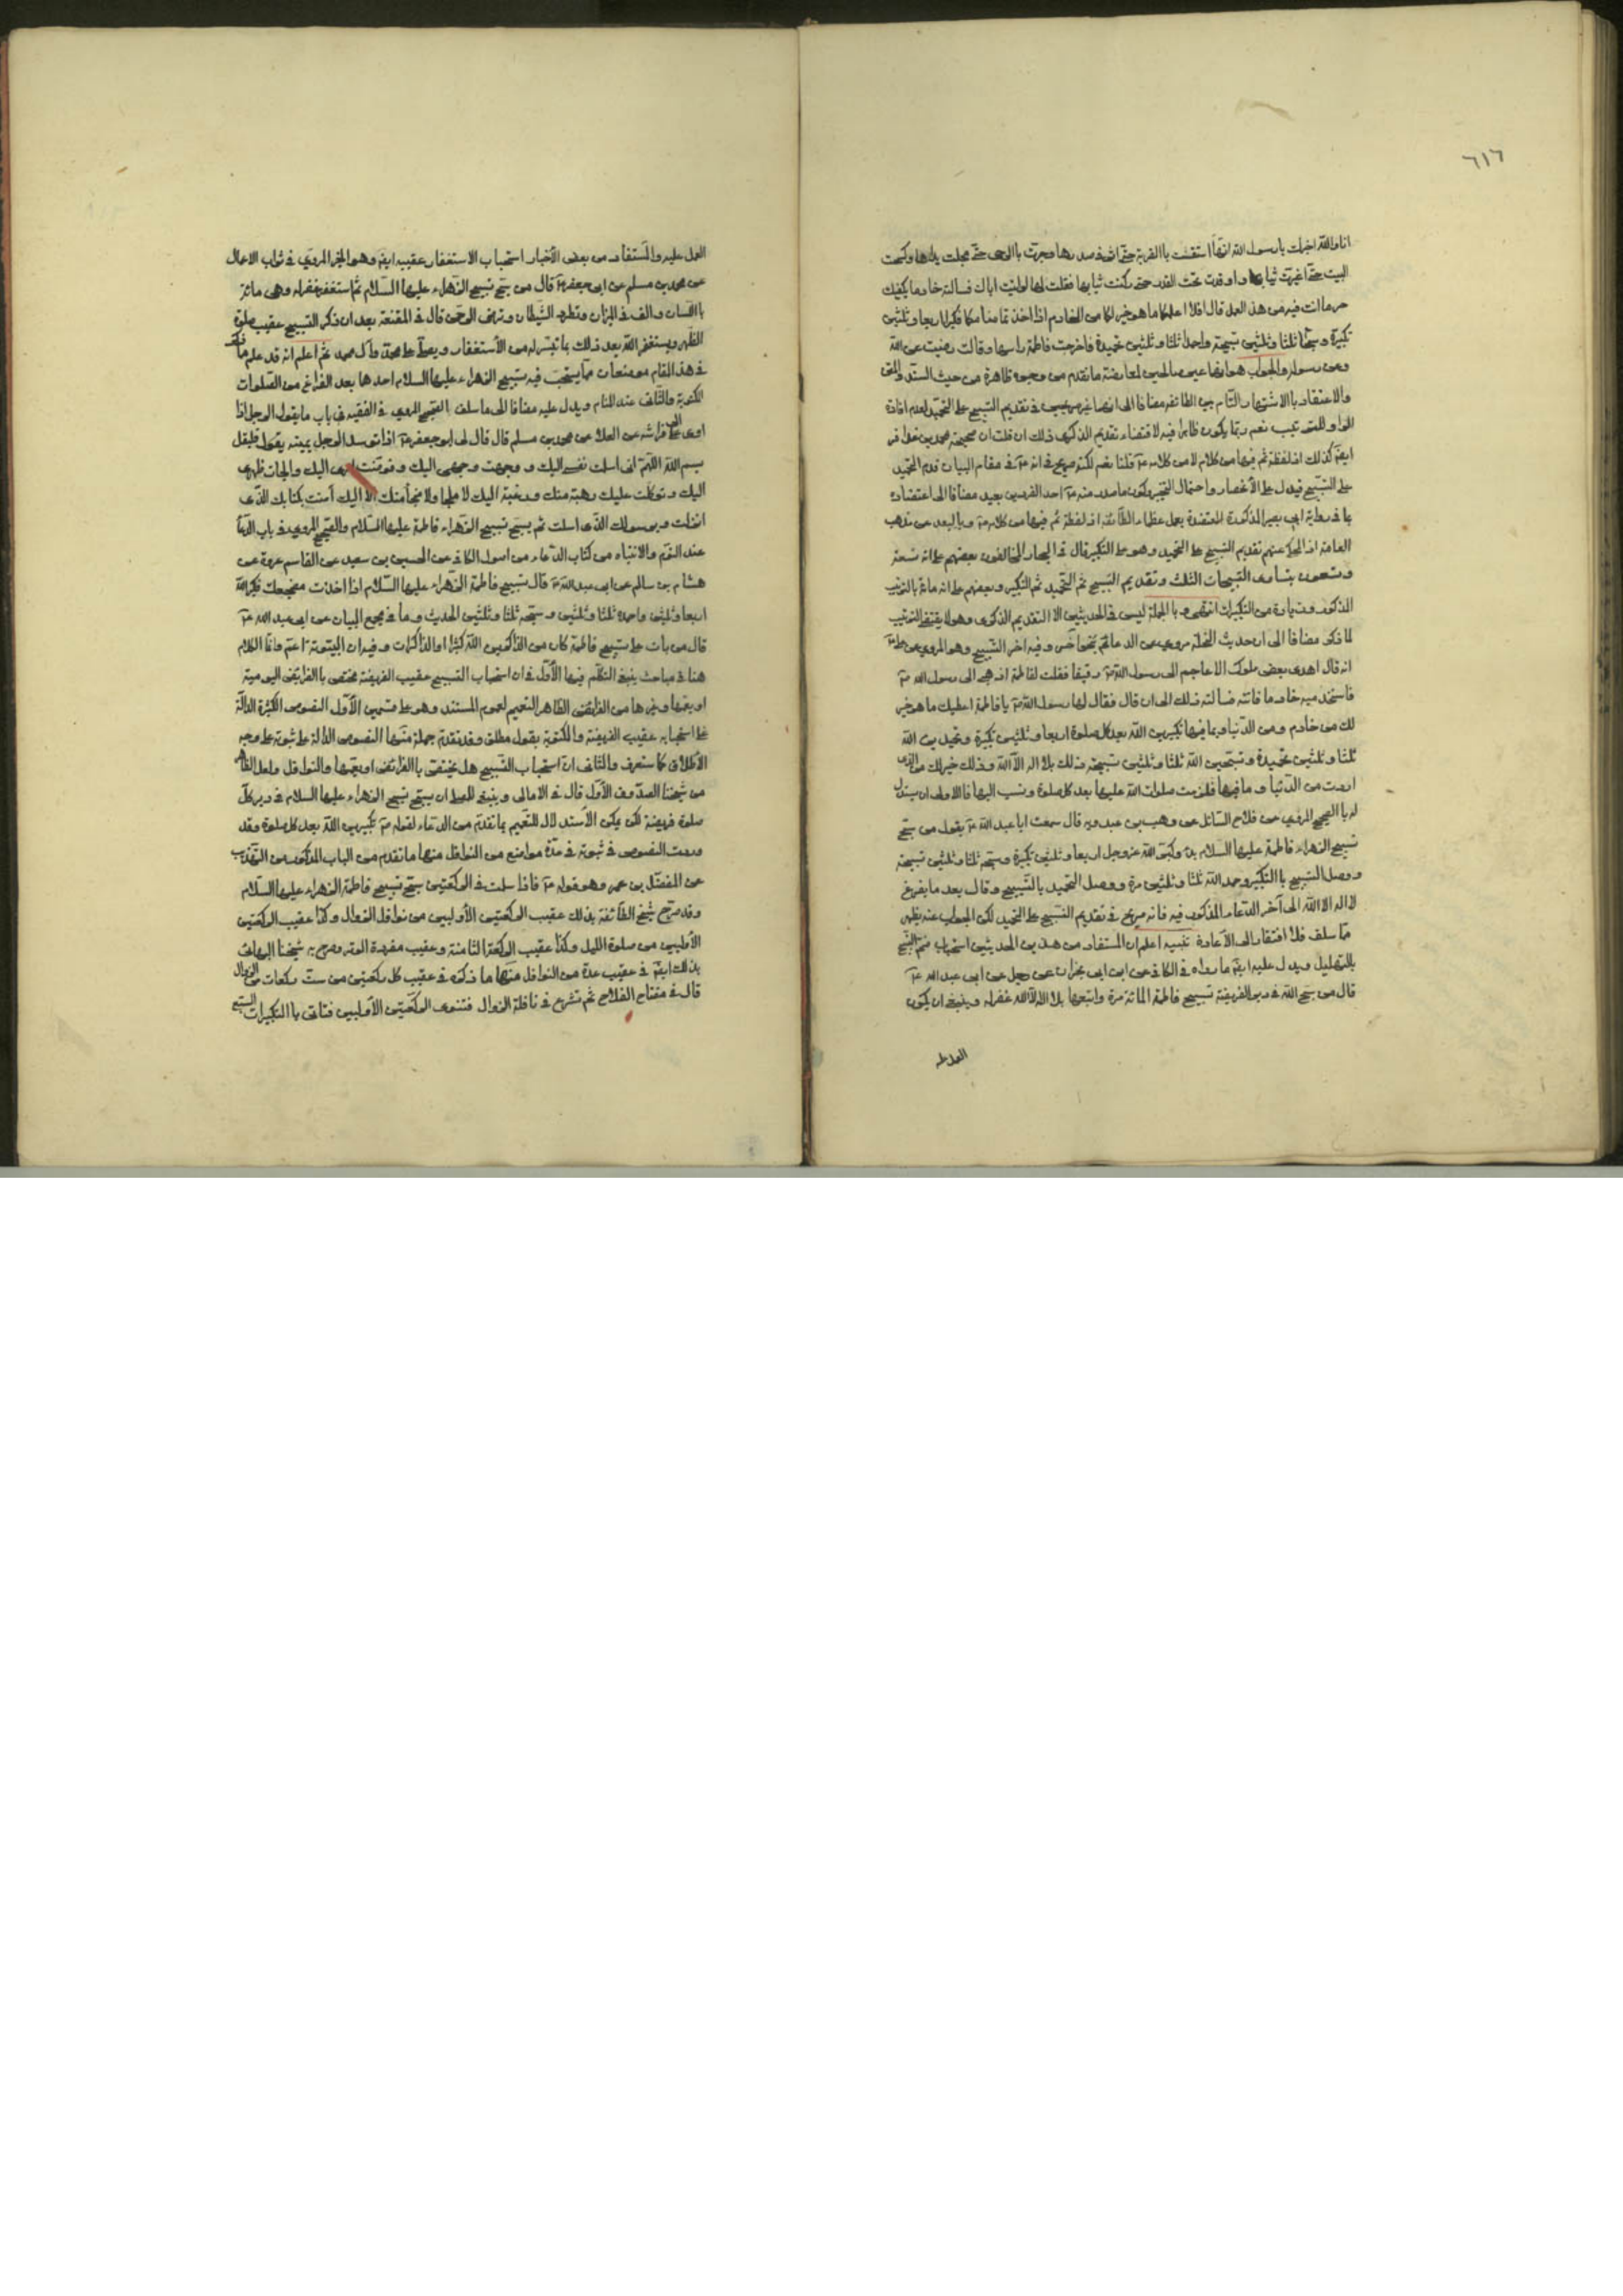 ٦١٦
انا والله اخبرك يا رسول الله انها استقت بالقربة حتى اثر في صدرها وجرت بالرحى حتى مجلت يداها وكسحت
البيت حتى اغبرت ثيابها واوقدت تحت القدر حتى دكنت ثيابها فقلت لها لو اتيت اباك فسالته خادما يكفيك
حر ما انت فيه من هذا العمل قال افلا اعلمكما ما هو خير لكما من الخادم اذا اخذتما منامكما فكبرا اربعا وثلثين
تكبيرة وسبحا ثلثا وثلثين تسبيحة واحمدا ثلثا وثلثين تحميدة فاخرجت فاطمة راسها وقالت رضيت عن الله
وعن رسوله والجواب هو انهما غير صالحين لمعارضة ما تقدم من وجوه ظاهرة من حيث السند والمتن
والاعتقاد بالاشتهار التام بين الطائفة مضافا الى انهما غير صريحين في تقديم التسبيح على التحميد لعدم افادة
الواو للترتيب نعم ربما يكون ظاهرا فيه لاقتضاء تقديم الذكرى ذلك ان قلت ان صحيحة محمد بن عذافر
ايضا كذلك اذ لفظة ثم فيها من كلام الراوي لا من كلامه ع قلنا نعم لكنه صريح في انه ع في مقام البيان قدم التحميد
على التسبيح فيدل على الانحصار واحتمال التخيير وكون ما صدر منه ع احد الفردين بعيد مضافا الى اعتضاده
بما في رواية ابي بصير المذكورة المعتضدة بعمل عظماء الطائفة اذ لفظة ثم فيها من كلامه ع وبالبعد عن مذهب
العامة اذ المحكي عنهم تقديم التسبيح على التحميد وهو على التكبير قال في البحار المخالفون بعضهم على انه تسعة
وتسعون بتساوى التسبيحات الثلث وتقديم التسبيح ثم التحميد ثم التكبير وبعضهم على انه مائة بالترتيب
المذكور وزيادة من التكبيرات انتهى وبالجملة ليس في الحديثين الا التقديم الذكرى وهو لا يقتضي الترتيب
لما ذكر مضافا الى ان حديث العلل مروي عن الدعائم بنحو آخر وفيه اخر التسبيح وهو المروي عن علي ع
انه قال اهدى بعض ملوك الاعاجم الى رسول الله ص رقيقا فقلت لفاطمة اذهبي الى رسول الله ص
فاستخدميه خادما فاتته فسالته ذلك الى ان قال فقال لها رسول الله ص يا فاطمة اعطيك ما هو خير
لك من خادم ومن الدنيا وما فيها تكبرين الله بعد كل صلوة اربعا وثلثين تكبيرة وتحمدين الله
ثلثا وثلثين تحميدة وتسبحين الله ثلثا وثلثين تسبيحة ذلك بلا اله الا الله وذلك خير لك من الذى
اردت من الدنيا وما فيها فلزمت صلوات الله عليها بعد كل صلوة ونسب اليها فالاولى ان يستدل
له بالصحيح المروي عن فلاح السائل عن وهب بن عبد ربه قال سمعت ابا عبد الله ع يقول من سبح
تسبيح الزهراء فاطمة عليها السلام بدء وكبر الله عز وجل اربعا وثلثين تكبيرة وسبحه ثلثا وثلثين تسبيحة
ووصل التسبيح بالتكبير وحمد الله ثلثا وثلثين مرة ووصل التحميد بالتسبيح وقال بعد ما يفرغ
لا اله الا الله الى آخر الدعاء المذكور فيه فانه صريح في تقديم التسبيح على التحميد لكن الجواب عنه يظهر
مما سلف فلا افتقار الى الاعادة تنبيه اعلم ان المستفاد من هذين الحديثين استحباب ختم التسبيح
بالتهليل ويدل عليه ايضا ما رواه في الكافي عن ابن ابي نجران عن رجل عن ابي عبد الله ع
قال من سبح الله في دبر الفريضة تسبيح فاطمة المائة مرة واتبعها بلا اله الا الله غفر له وينبغي ان يكون
العمل عليه
العمل عليه والمستفاد من بعض الأخبار استحباب الاستغفار عقيبه ايضا وهو الخبر المروي في ثواب الاعمال
عن محمد بن مسلم عن ابي جعفر ع قال من سبح تسبيح الزهراء عليها السلام ثم استغفر غفر له وهى مائة
باللسان والف في الميزان وتطرد الشيطان وترضى الرحمن قال في المقنعة بعد ان ذكر التسبيح عقيب صلوة
الظهر ويستغفر الله بعد ذلك بما تيسر له من الأستغفار ويصلى على محمد وآل محمد ثم اعلم انه قد علم مما ذكر
في هذا المقام موضعان مما يستحب فيه تسبيح الزهراء عليها السلام احدها بعد الفراغ من الصلوات
المكتوبة والثاني عند المنام ويدل عليه مضافا الى ما سلف الصحيح المروي في الفقيه في باب ما يقول الرجل اذا
اوى الى فراشه عن العلا عن محمد بن مسلم قال قال لى ابو جعفر ع اذا توسد الرجل يمينه يقول فليقل
بسم الله اللهم انى اسلمت نفسى اليك ووجهت وجهى اليك وفوضت امرى اليك والجات ظهرى
اليك وتوكلت عليك رهبة منك ورغبة اليك لا ملجا ولا منجا منك الا اليك آمنت بكتابك الذى
انزلت وبرسولك الذى ارسلت ثم يسبح تسبيح الزهراء فاطمة عليها السلام والصحيح المروي في باب الدعاء
عند النوم والانتباه من كتاب الدعاء من اصول الكافي عن الحسين بن سعيد عن القاسم عروة عن
هشام بن سالم عن ابي عبد الله ع قال تسبيح فاطمة الزهراء عليها السلام اذا اخذت مضجعك فكبر الله
اربعا وثلثين واحمده ثلثا وثلثين وسبحه ثلثا وثلثين الحديث وما في مجمع البيان عن ابي عبد الله ع
قال من بات على تسبيح فاطمة كان من الذاكرين الله كثيرا والذاكرات وفيه ان البيتوتة اعم وانما الكلام
هنا في مباحث ينبغي التكلم فيها الأول في ان استحباب التسبيح عقيب الفريضة مختص بالفرائض اليومية
او يعمها وغيرها من الفرائض الظاهر التعميم لعموم المستند وهو على قسمين الأول النصوص الكثيرة الدالة
على استحبابه عقيب الفريضة والمكتوبة بقول مطلق وقد تقدم جملة منها النصوص الدالة على ثبوته على وجه
الأطلاق كما ستعرف والثاني ان استحباب التسبيح هل يختص بالفرائض او يعمها والنوافل ولعل الظاهر
من شيخنا الصدوق الأول قال في الامالى وينبغي للمصلى ان يسبح تسبيح الزهراء عليها السلام في دبر كل
صلوة فريضة لكن يمكن الأستدلال للتعميم بما تقدم من الدعاء لقوله ص تكبرين الله بعد كل صلوة وقد
وردت النصوص في ثبوته في عدة مواضع من النوافل منها ما تقدم من الباب المذكور من التهذيب
عن المفضل بن عمر وهو قوله ع فاذا سلمت في الركعتين سبح تسبيح فاطمة الزهراء عليها السلام
وقد صرح شيخ الطائفة بذلك عقيب الركعتين الأوليين من نوافل الزوال وكذا عقيب الركعتين
الأوليين من صلوة الليل وكذا عقيب الركعة الثامنة وعقيب مفردة الوتر وصرح به شيخنا البهائي
بذلك ايضا في عقيب عدة من النوافل منها ما ذكره في عقيب كل ركعتين من ست ركعات من الزوال
قال في مفتاح الفلاح ثم تشرع في نافلة الزوال فتنوى الركعتين الأوليين فتاتى بالتكبيرات السبع